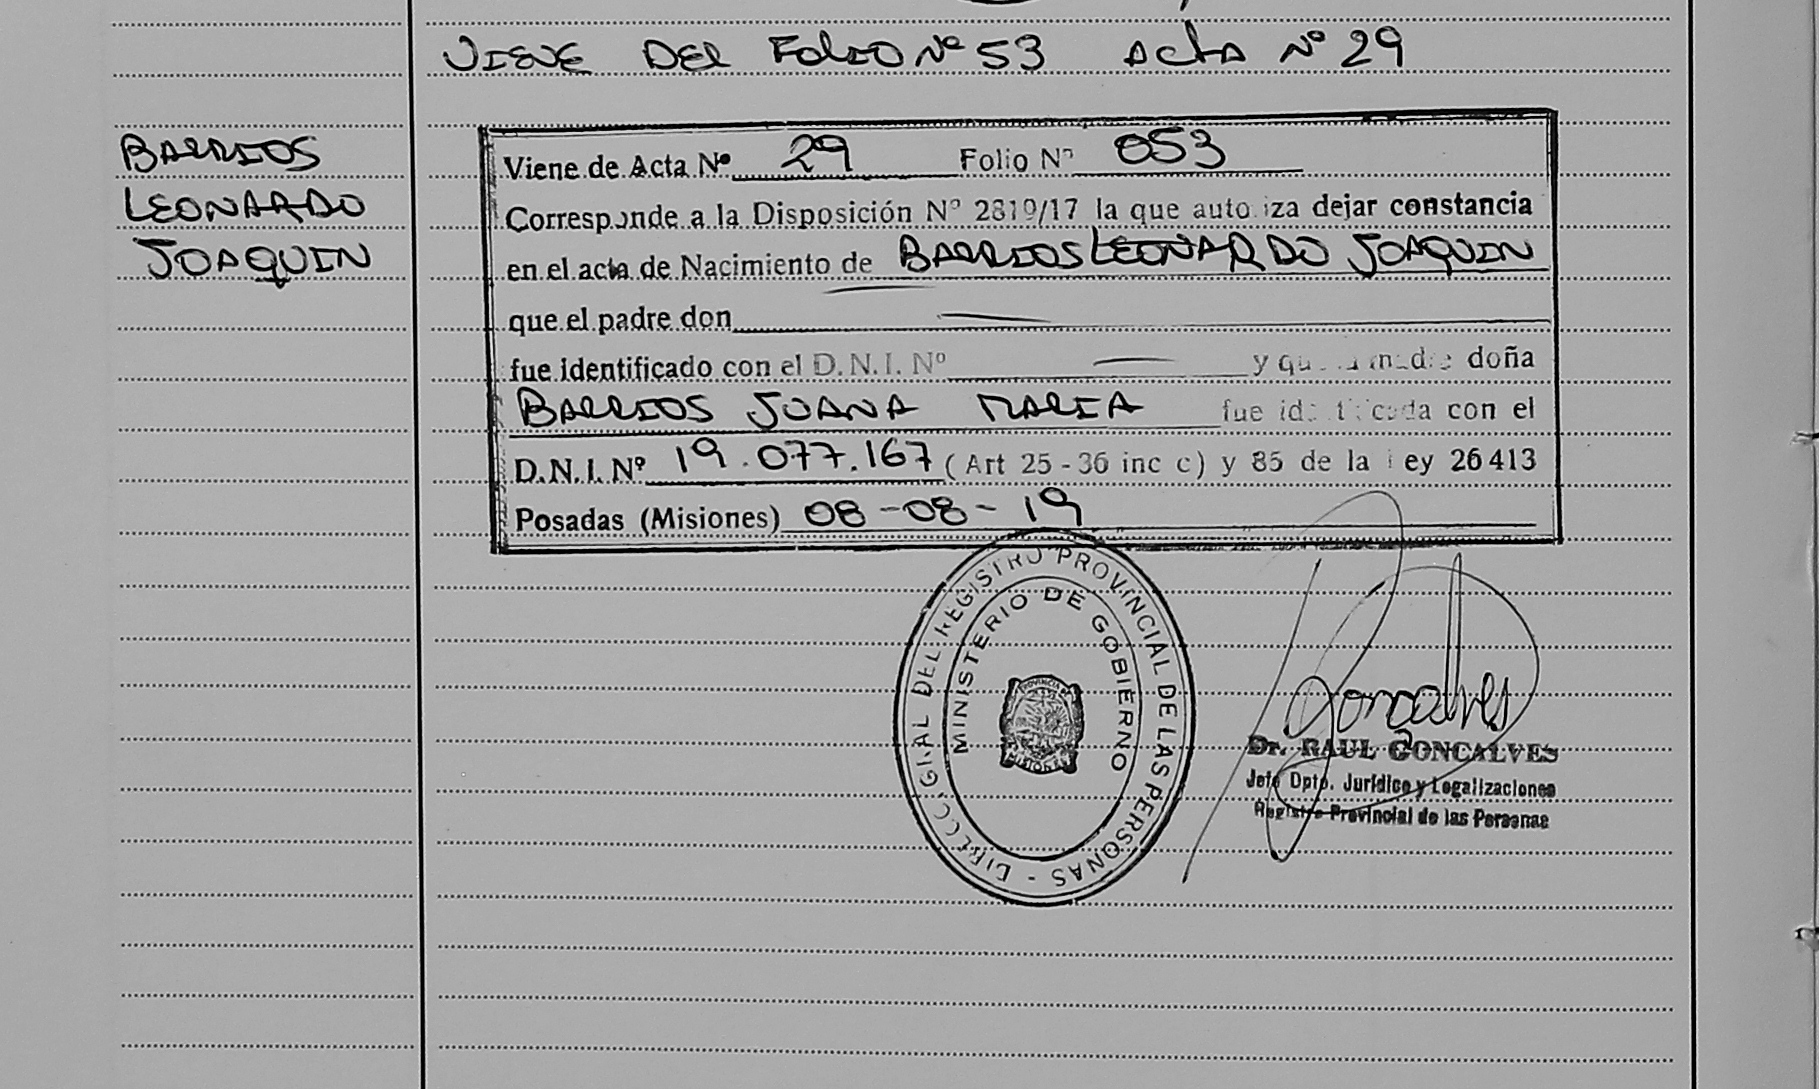 VIENE DEL FOLIO Nº 53 ACTA Nº 29
BARRIOS
LEONARDO
JOAQUIN
Viene de Acta Nº 29 Folio Nº 053
Corresponde a la Disposición Nº 2819/17 la que autoriza dejar constancia
en el acta de Nacimiento de BARRIOS LEONARDO JOAQUIN
que el padre don
fue identificado con el D.N.I. Nº y que la madre doña
BARRIOS JUANA MARIA fue identificada con el
D.N.I. Nº 19.077.167 (Art 25 - 36 inc c) y 85 de la ley 26413
Posadas (Misiones) 08-08-19
DIRECC. GRAL DEL REGISTRO PROVINCIAL DE LAS PERSONAS -
MINISTERIO DE GOBIERNO
PROVINCIA DE
MISIONES
Goncalves
Dr. RAUL GONCALVES
Jefe Dpto. Jurídico y Legalizaciones
Registro Provincial de las Personas